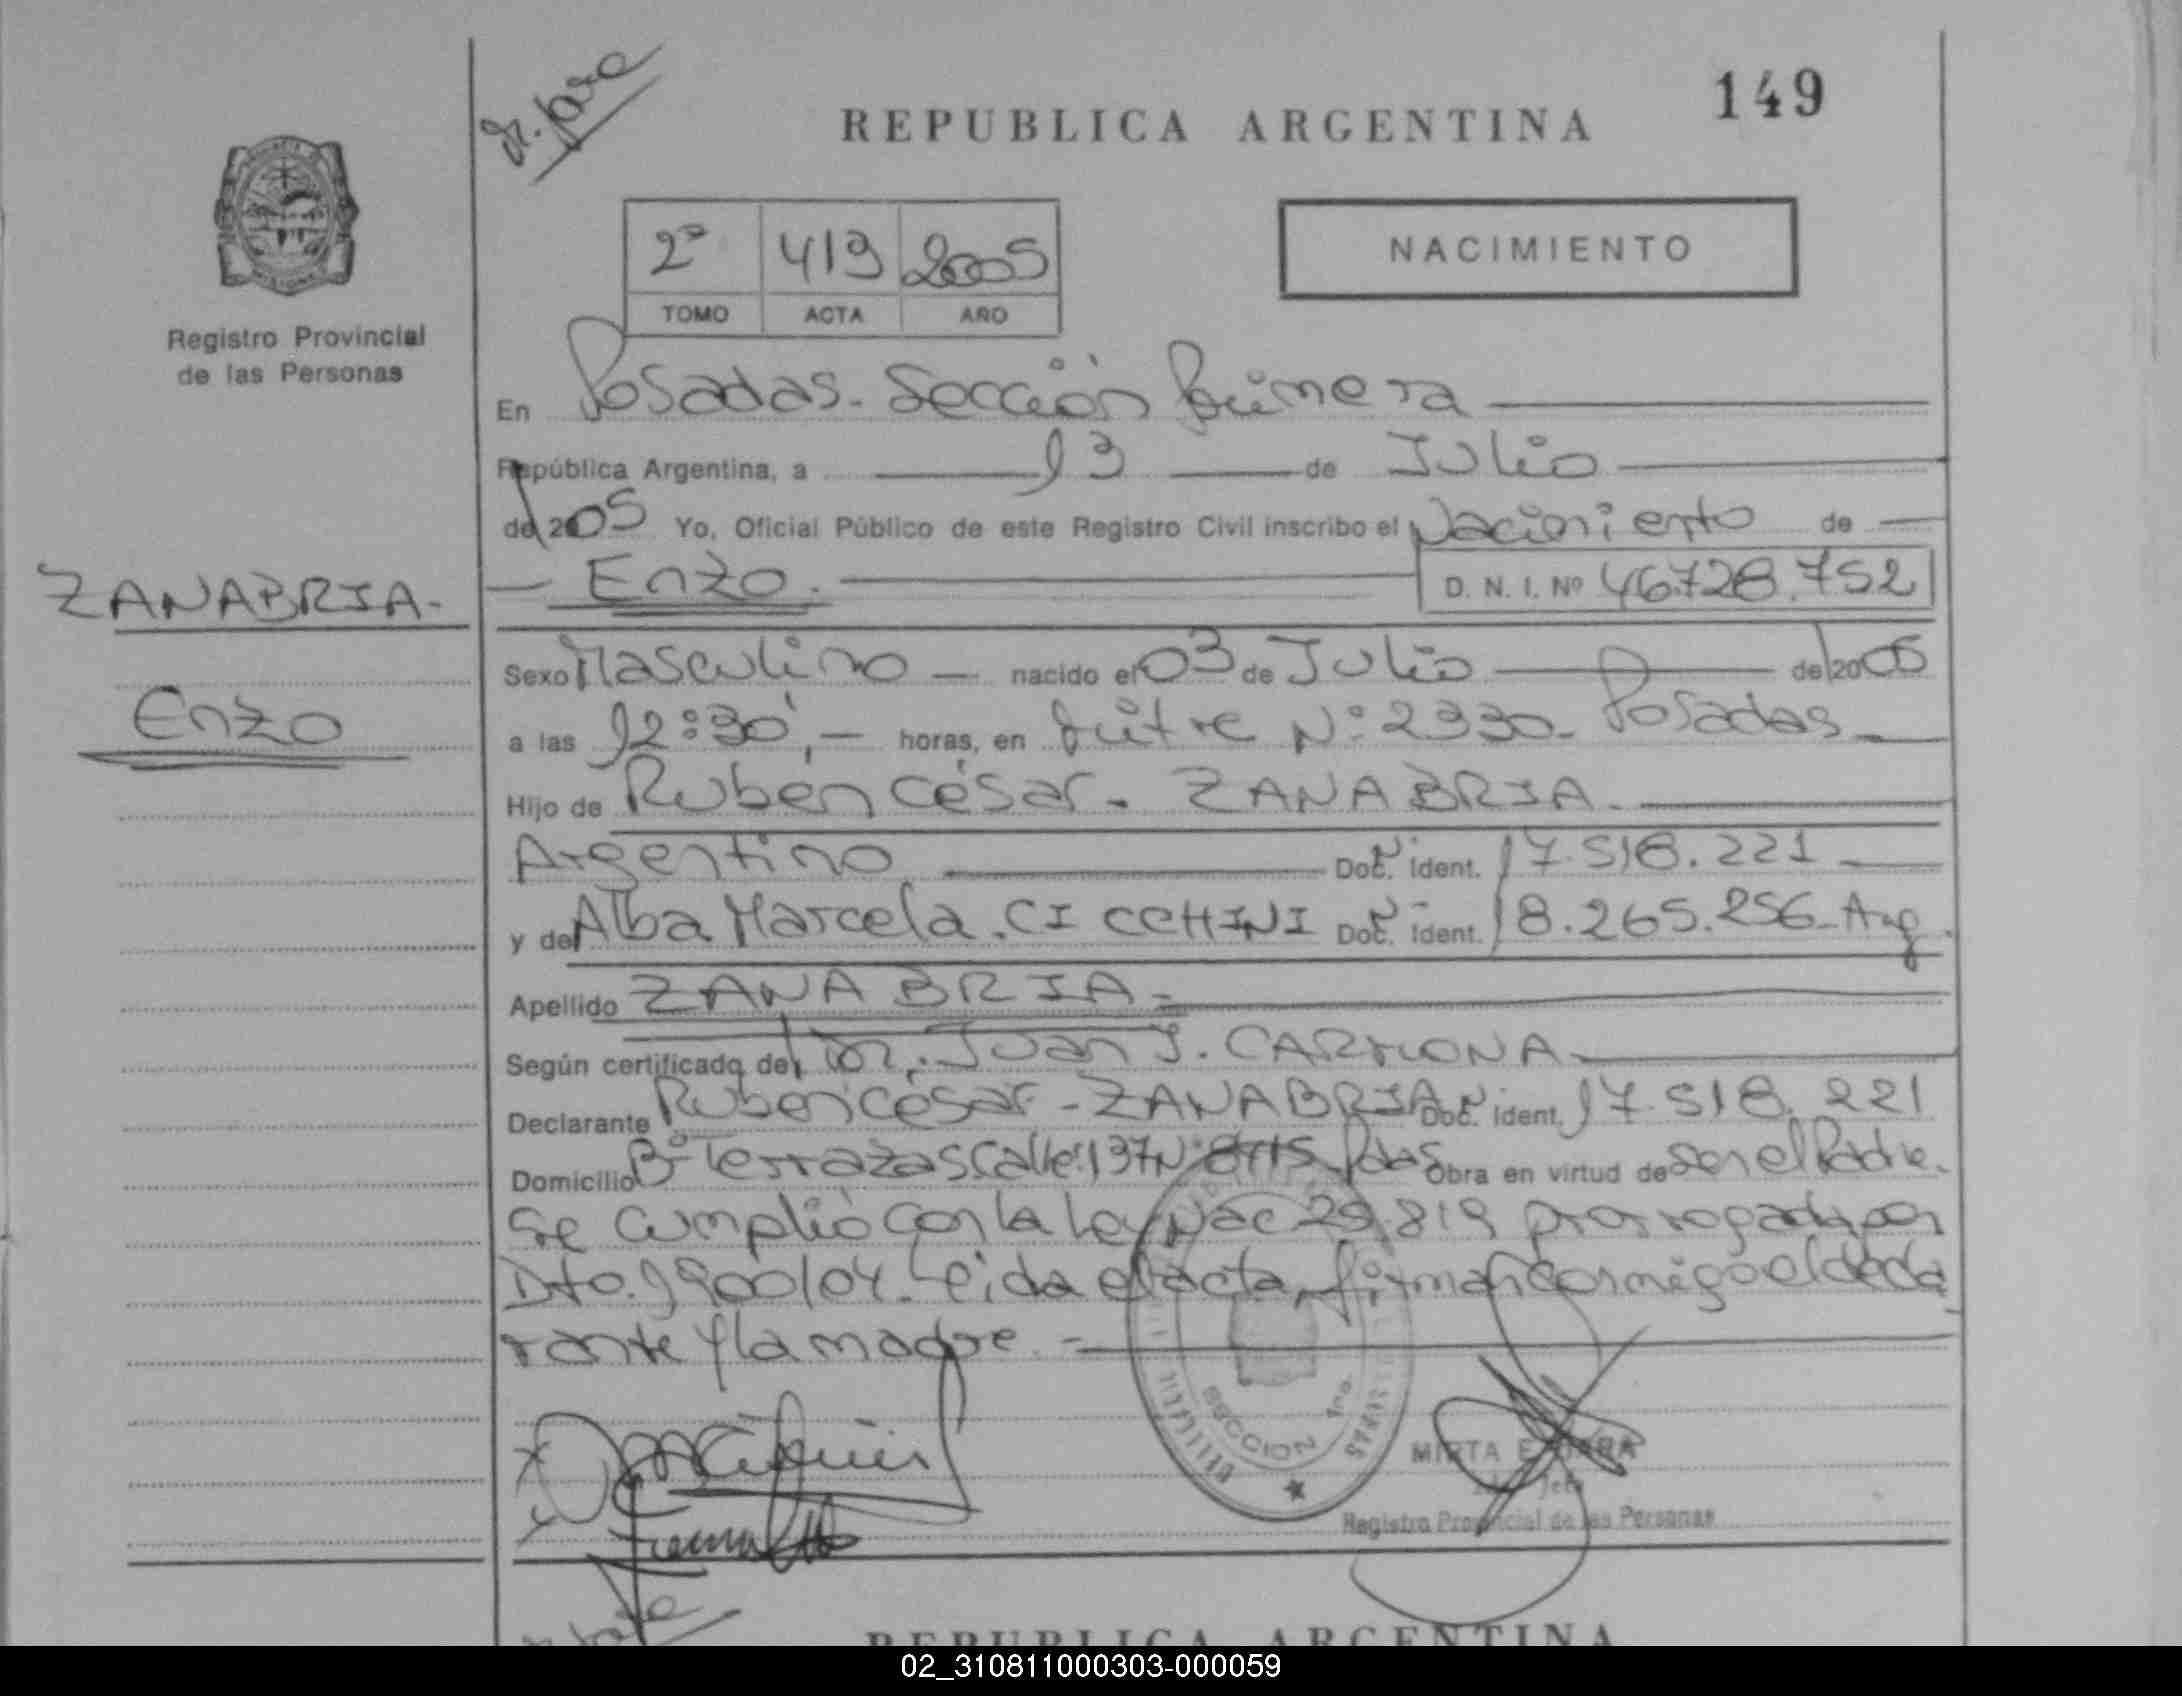 dr. jose
REPUBLICA ARGENTINA
149
2º 419 2005
TOMO ACTA AÑO
NACIMIENTO
Registro Provincial
de las Personas
En Posadas. Sección Primera
República Argentina, a 13 de Julio
de 2005 Yo, Oficial Público de este Registro Civil inscribo el Nacimiento de
ZANABRIA.
Enzo.
D. N. I. Nº 46.728.752
Sexo Masculino nacido el 03 de Julio de 2005
Enzo
a las 12:30', horas, en Mitre Nº: 2330. Posadas
Hijo de Rubén César. ZANABRIA.
Argentino Doc. Ident. 17.518.221
y de Alba Marcela. CICCHINI Doc. Ident. 18.265.256 Arg.
Apellido ZANABRIA
Según certificado del Dr. Juan J. CARMONA
Declarante Rubén César - ZANABRIA Doc. Ident. 17.518.221
Domicilio Bº Terrazas Calle: 137 Nº 8415. Pdas Obra en virtud de Ser el Padre.
Se cumplió con la Ley Nac 25.819 prorrogada por
Dto. 1900/04. Leida el acta, firman conmigo el decla
rante y la madre.
SECCION 1ra.
MIRTA E.
Jefe
Registro Provincial de las Personas
REPUBLICA ARGENTINA
02_310811000303-000059